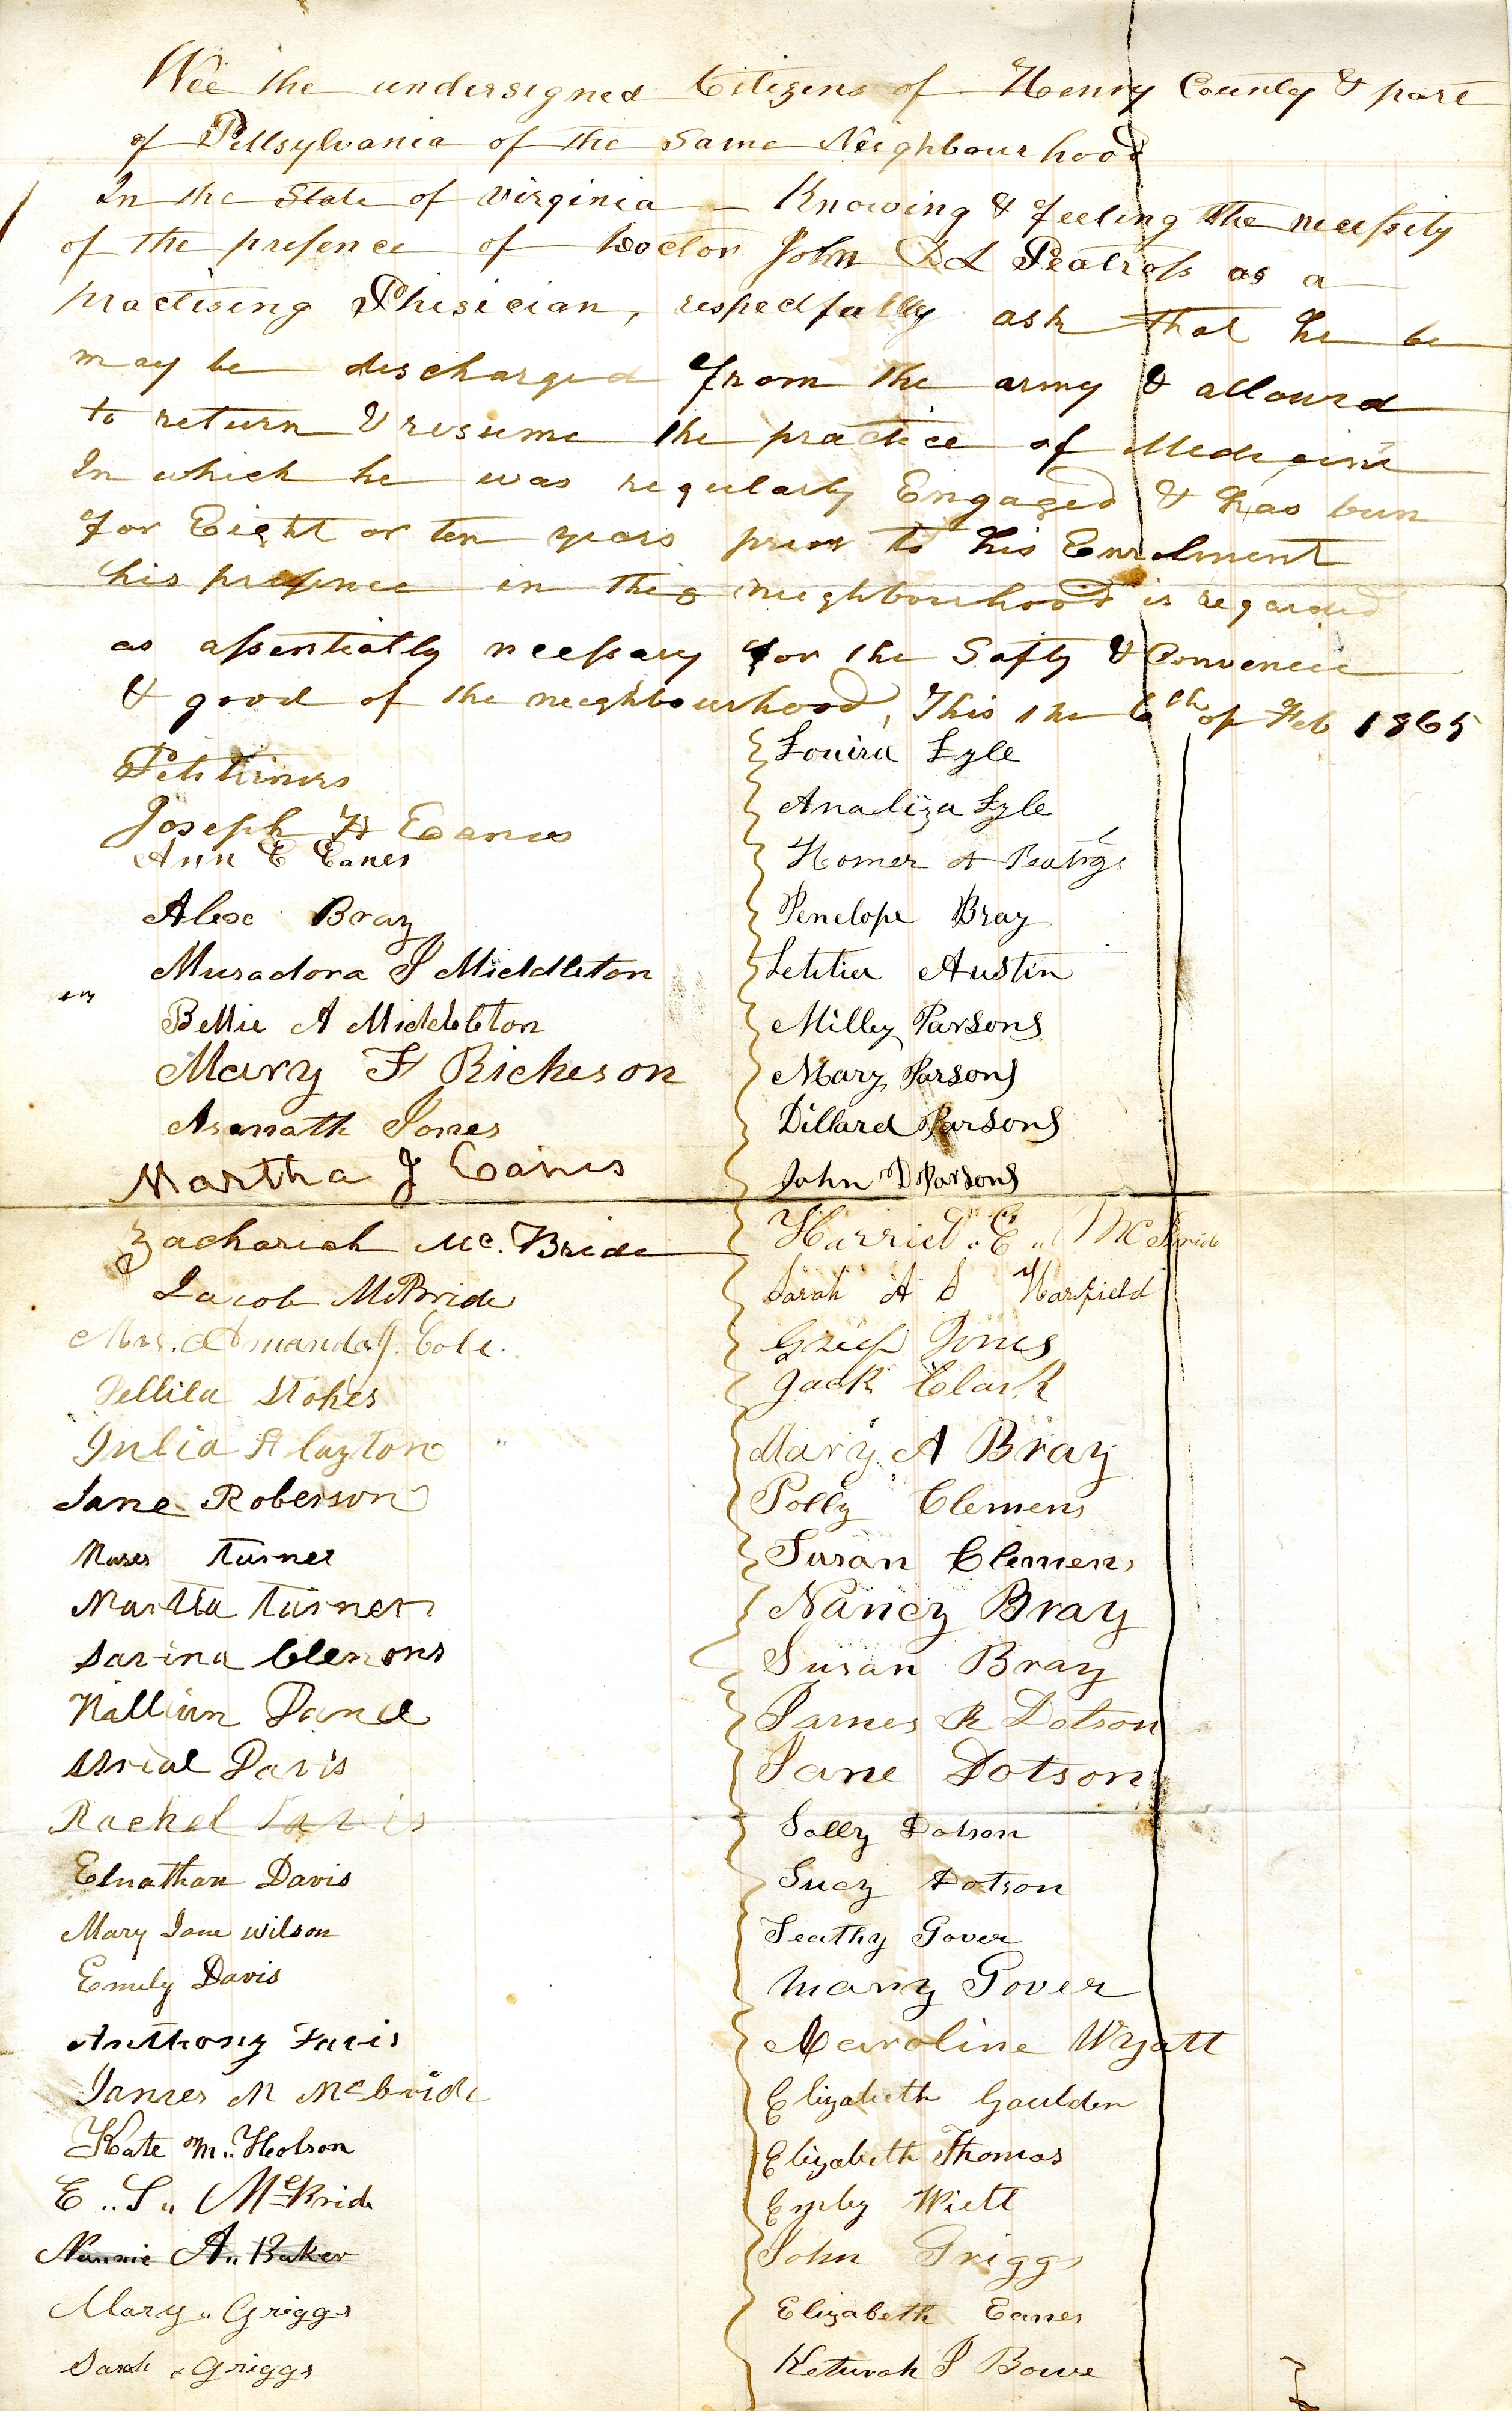 Wee the undersigned Citizens of Henry County & part
of Pittsylvania of the Same Neighbourhood
In the State of Virginia – Knowing & feeling the necessity
of the presence of Doctor John Peatross as a
practising Phisician, respectfully ask that he be
may be discharged from the army & allowed
to return & resume the practice of Medicine
In which he was regularly Engaged & has been
for Eight or ten years prior to his Enrolment
his presence in this neighbourhood is regarded
as assentially necessary for the Safty & Convenience
& good of the neighbourhood, This the 6th of Feb 1865
Petitiners
Joseph H Eanes
Ann E Eanes
Alex Bray
Musadora J Middleton
Bettie A Middleton
Mary F Richeson
Asenath Jones
Martha J Eanes
Zachariah Mc.Bride
Jacob McBride
Mrs. Amanda J. Cole.
Stokes
Julia Clayton
Jane Roberson
Moses turner
Martha turner
Sarina Clemons
William
Davis
Rachel Davis
Elnathan Davis
Mary Jane Wilson
Emily Davis
Anthony Davis
James M McBride
Kate M..
E..S.. McBride
Nannie A.. Baker
Mary.. Griggs
Sarah Griggs
Louisa Lyle
Analiza Lyle
Homer A
Penelope Bray
Letitia Austin
Milley Parsons
Mary Parsons
Dillard Parsons
John D Parsons
Harriet..E.. McBride
Sarah A S
Jones
Jack Clark
Mary A Bray
Polly Clemens
Susan Clemens
Nancy Bray
Susan Bray
James R Dotson
Jane Dotson
Sally Dotson
Lucy Dotson
Gover
Mary Gover
Caroline Wyatt
Elizabeth Gaulden
Elizabeth Thomas
Emley Wiett
John Griggs
Elizabeth Eanes
Keturah J Bowe